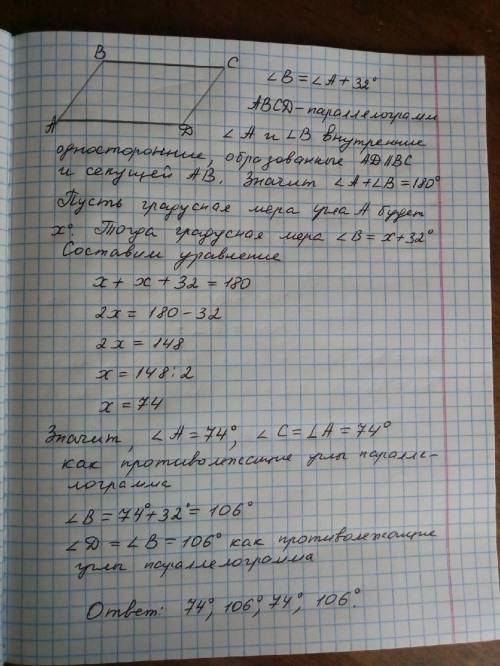 B
C
A
D
∠B = ∠A + 32°
ABCD - параллелограмм
∠A и ∠B внутренние
односторонние, образованные AD∥BC
и секущей AB. Значит ∠A+∠B = 180°
Пусть градусная мера угла A будет
x°. Тогда градусная мера ∠B = x+32°
Составим уравнение
x + x + 32 = 180
2x = 180 - 32
2x = 148
x = 148 : 2
x = 74
Значит, ∠A = 74°, ∠C = ∠A = 74°
как противолежащие углы паралле-
лограмма
∠B = 74° + 32° = 106°
∠D = ∠B = 106° как противолежащие
углы параллелограмма
Ответ: 74°, 106°, 74°, 106°.